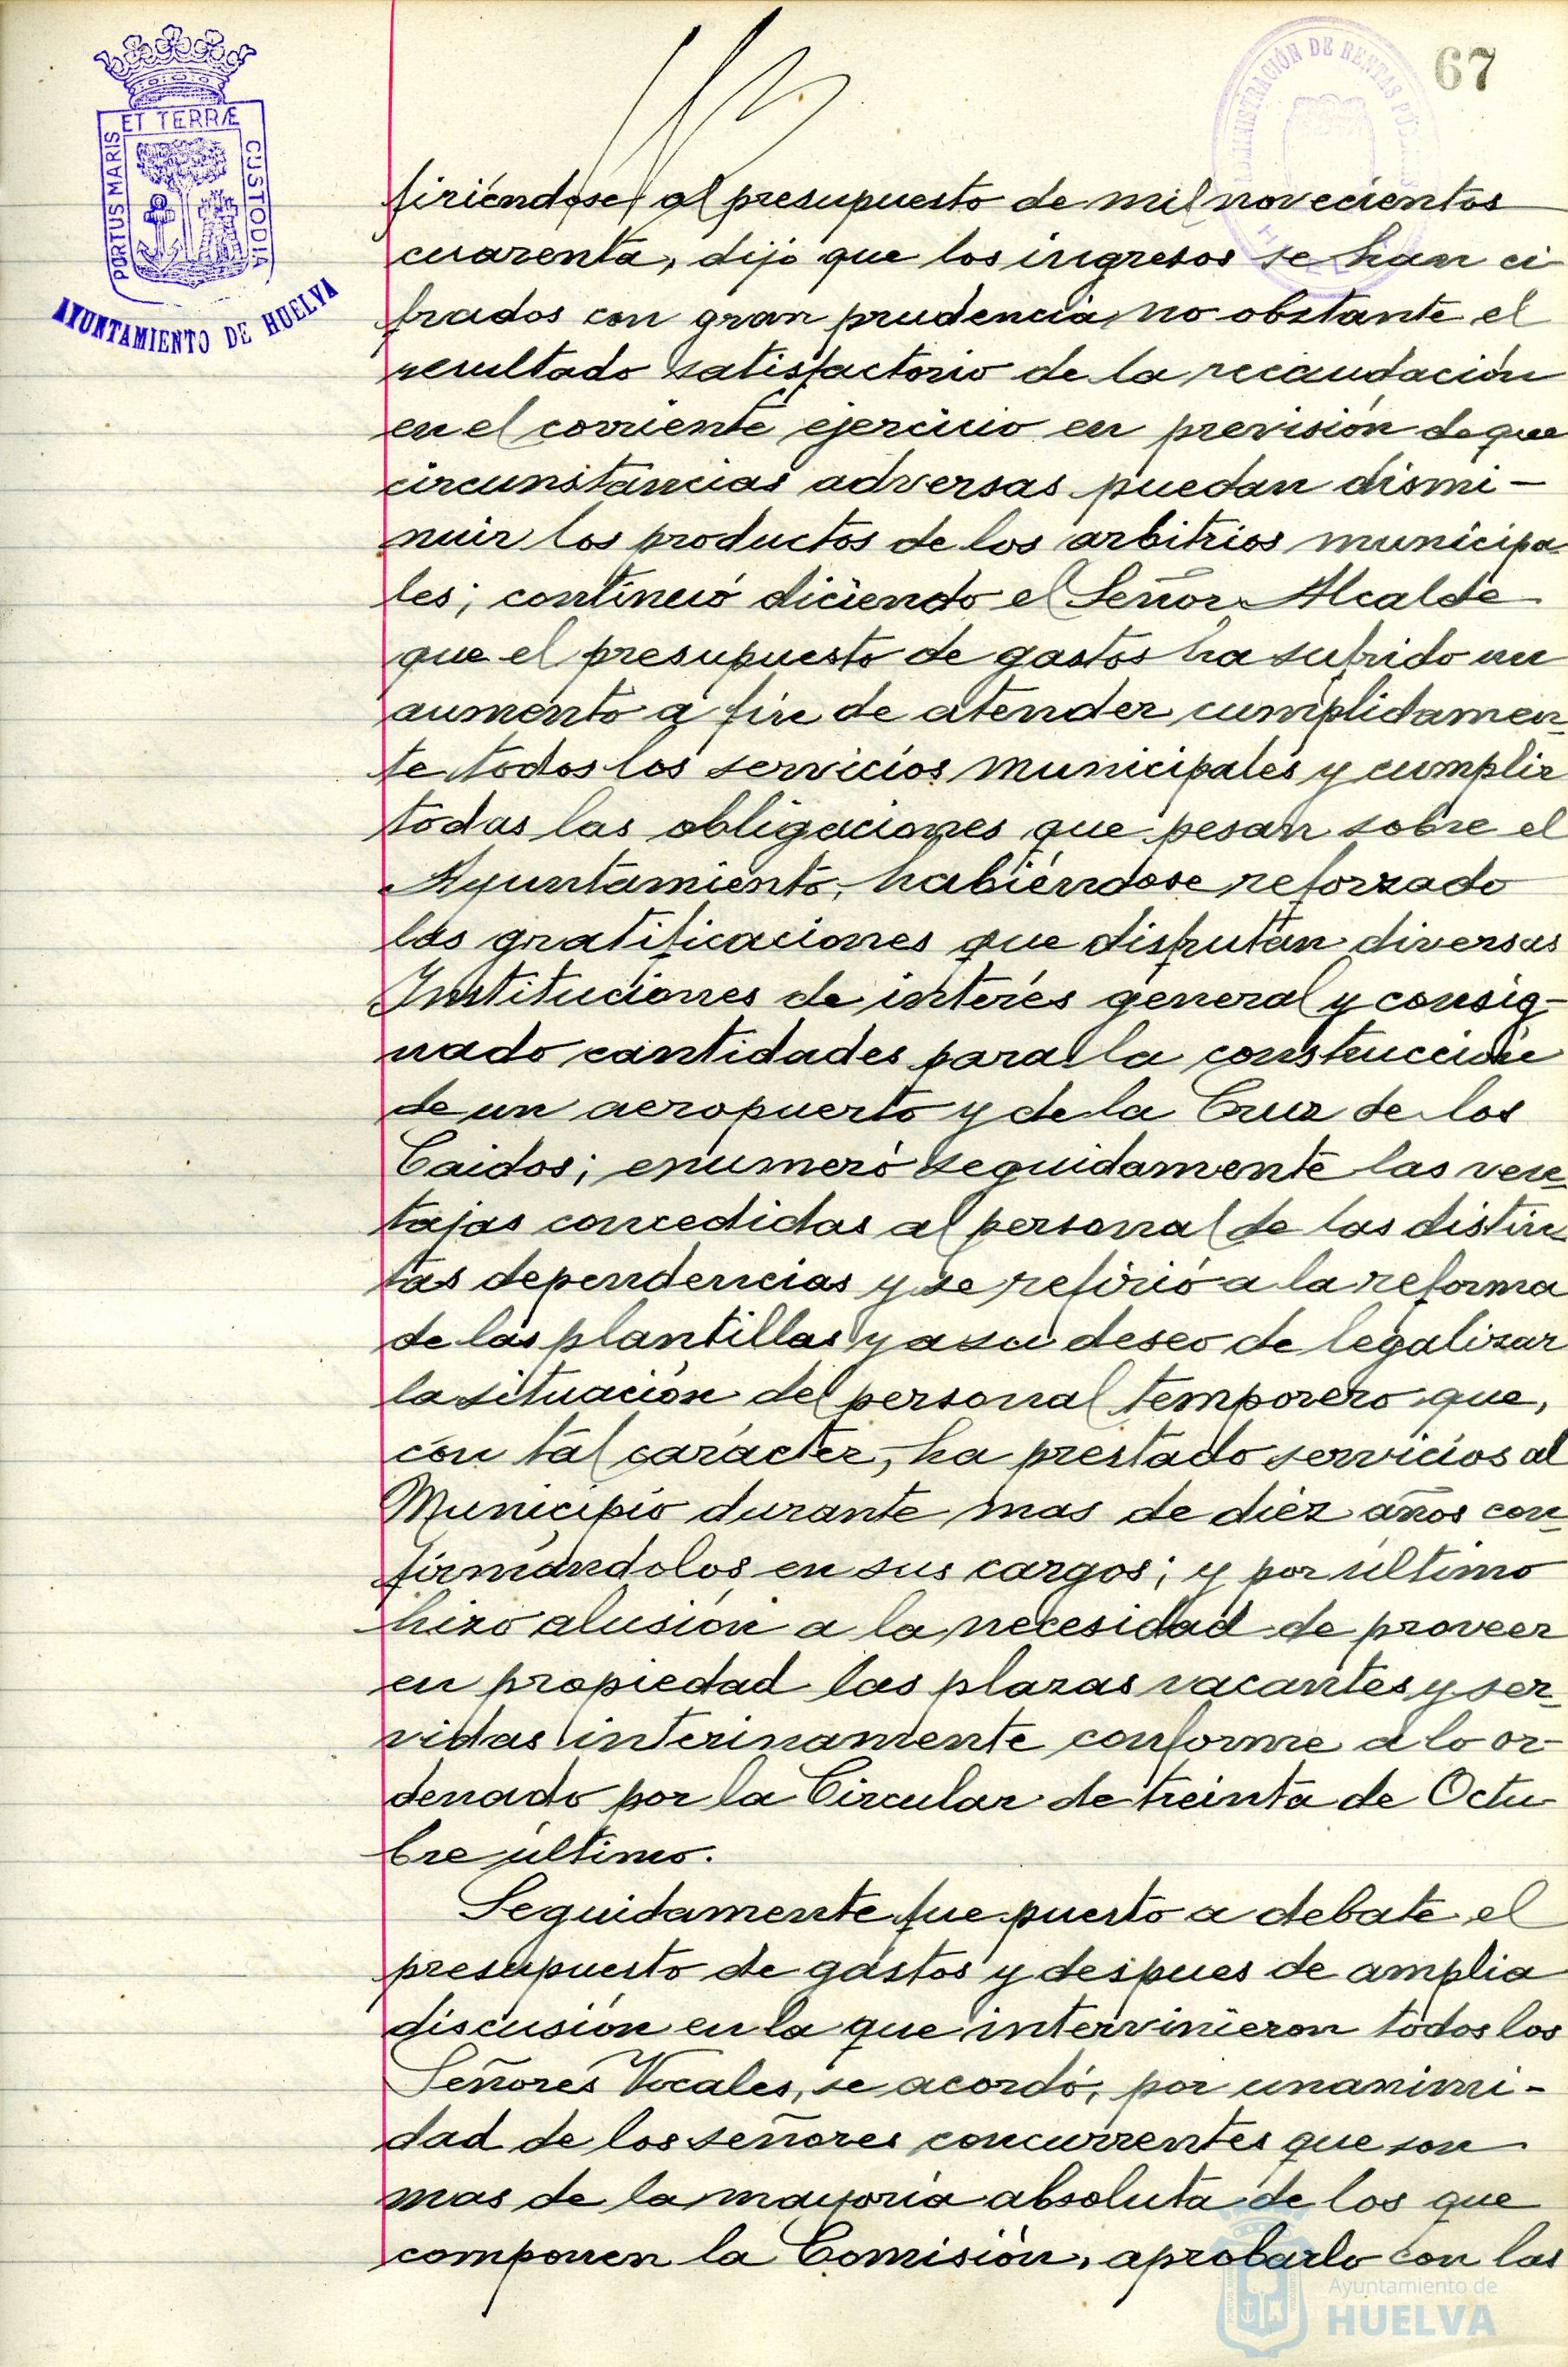 67
ET TERRÆ
PORTUS MARIS
CUSTODIA
AYUNTAMIENTO DE HUELVA
ADMINISTRACIÓN DE RENTAS PÚBLICAS
firiéndose al presupuesto de mil novecientos
cuarenta, dijo que los ingresos se han ci
frados con gran prudencia no obstante el
resultado satisfactorio de la recaudación
en el corriente ejercicio en previsión de que
circunstancias adversas puedan dismi-
nuir los productos de los arbitrios municipa
les; continuó diciendo el Señor Alcalde
que el presupuesto de gastos ha sufrido un
aumento a fin de atender cumplidamen-
te todos los servicios municipales y cumplir
todas las obligaciones que pesan sobre el
Ayuntamiento, habiéndose reforzado
las gratificaciones que disfrutan diversas
Instituciones de interés general y consig-
nado cantidades para la construcción
de un aeropuerto y de la Cruz de los
Caidos; enumeró seguidamente las ven-
tajas concedidas al personal de las distin-
tas dependencias y se refirió a la reforma
de las plantillas y a su deseo de legalizar
la situación del personal temporero que,
con tal carácter, ha prestado servicios al
Municipio durante mas de diez años con-
firmándolos en sus cargos; y por último
hizo alusión a la necesidad de proveer
en propiedad las plazas vacantes y ser-
vidas interinamente conforme a lo or-
denado por la Circular de treinta de Octu-
bre último.
Seguidamente fue puesto a debate el
presupuesto de gastos y despues de amplia
discusión en la que intervinieron todos los
Señores Vocales, se acordó, por unanimi-
dad de los señores concurrentes que son
mas de la mayoría absoluta de los que
componen la Comisión, aprobarlo con las
Ayuntamiento de
HUELVA